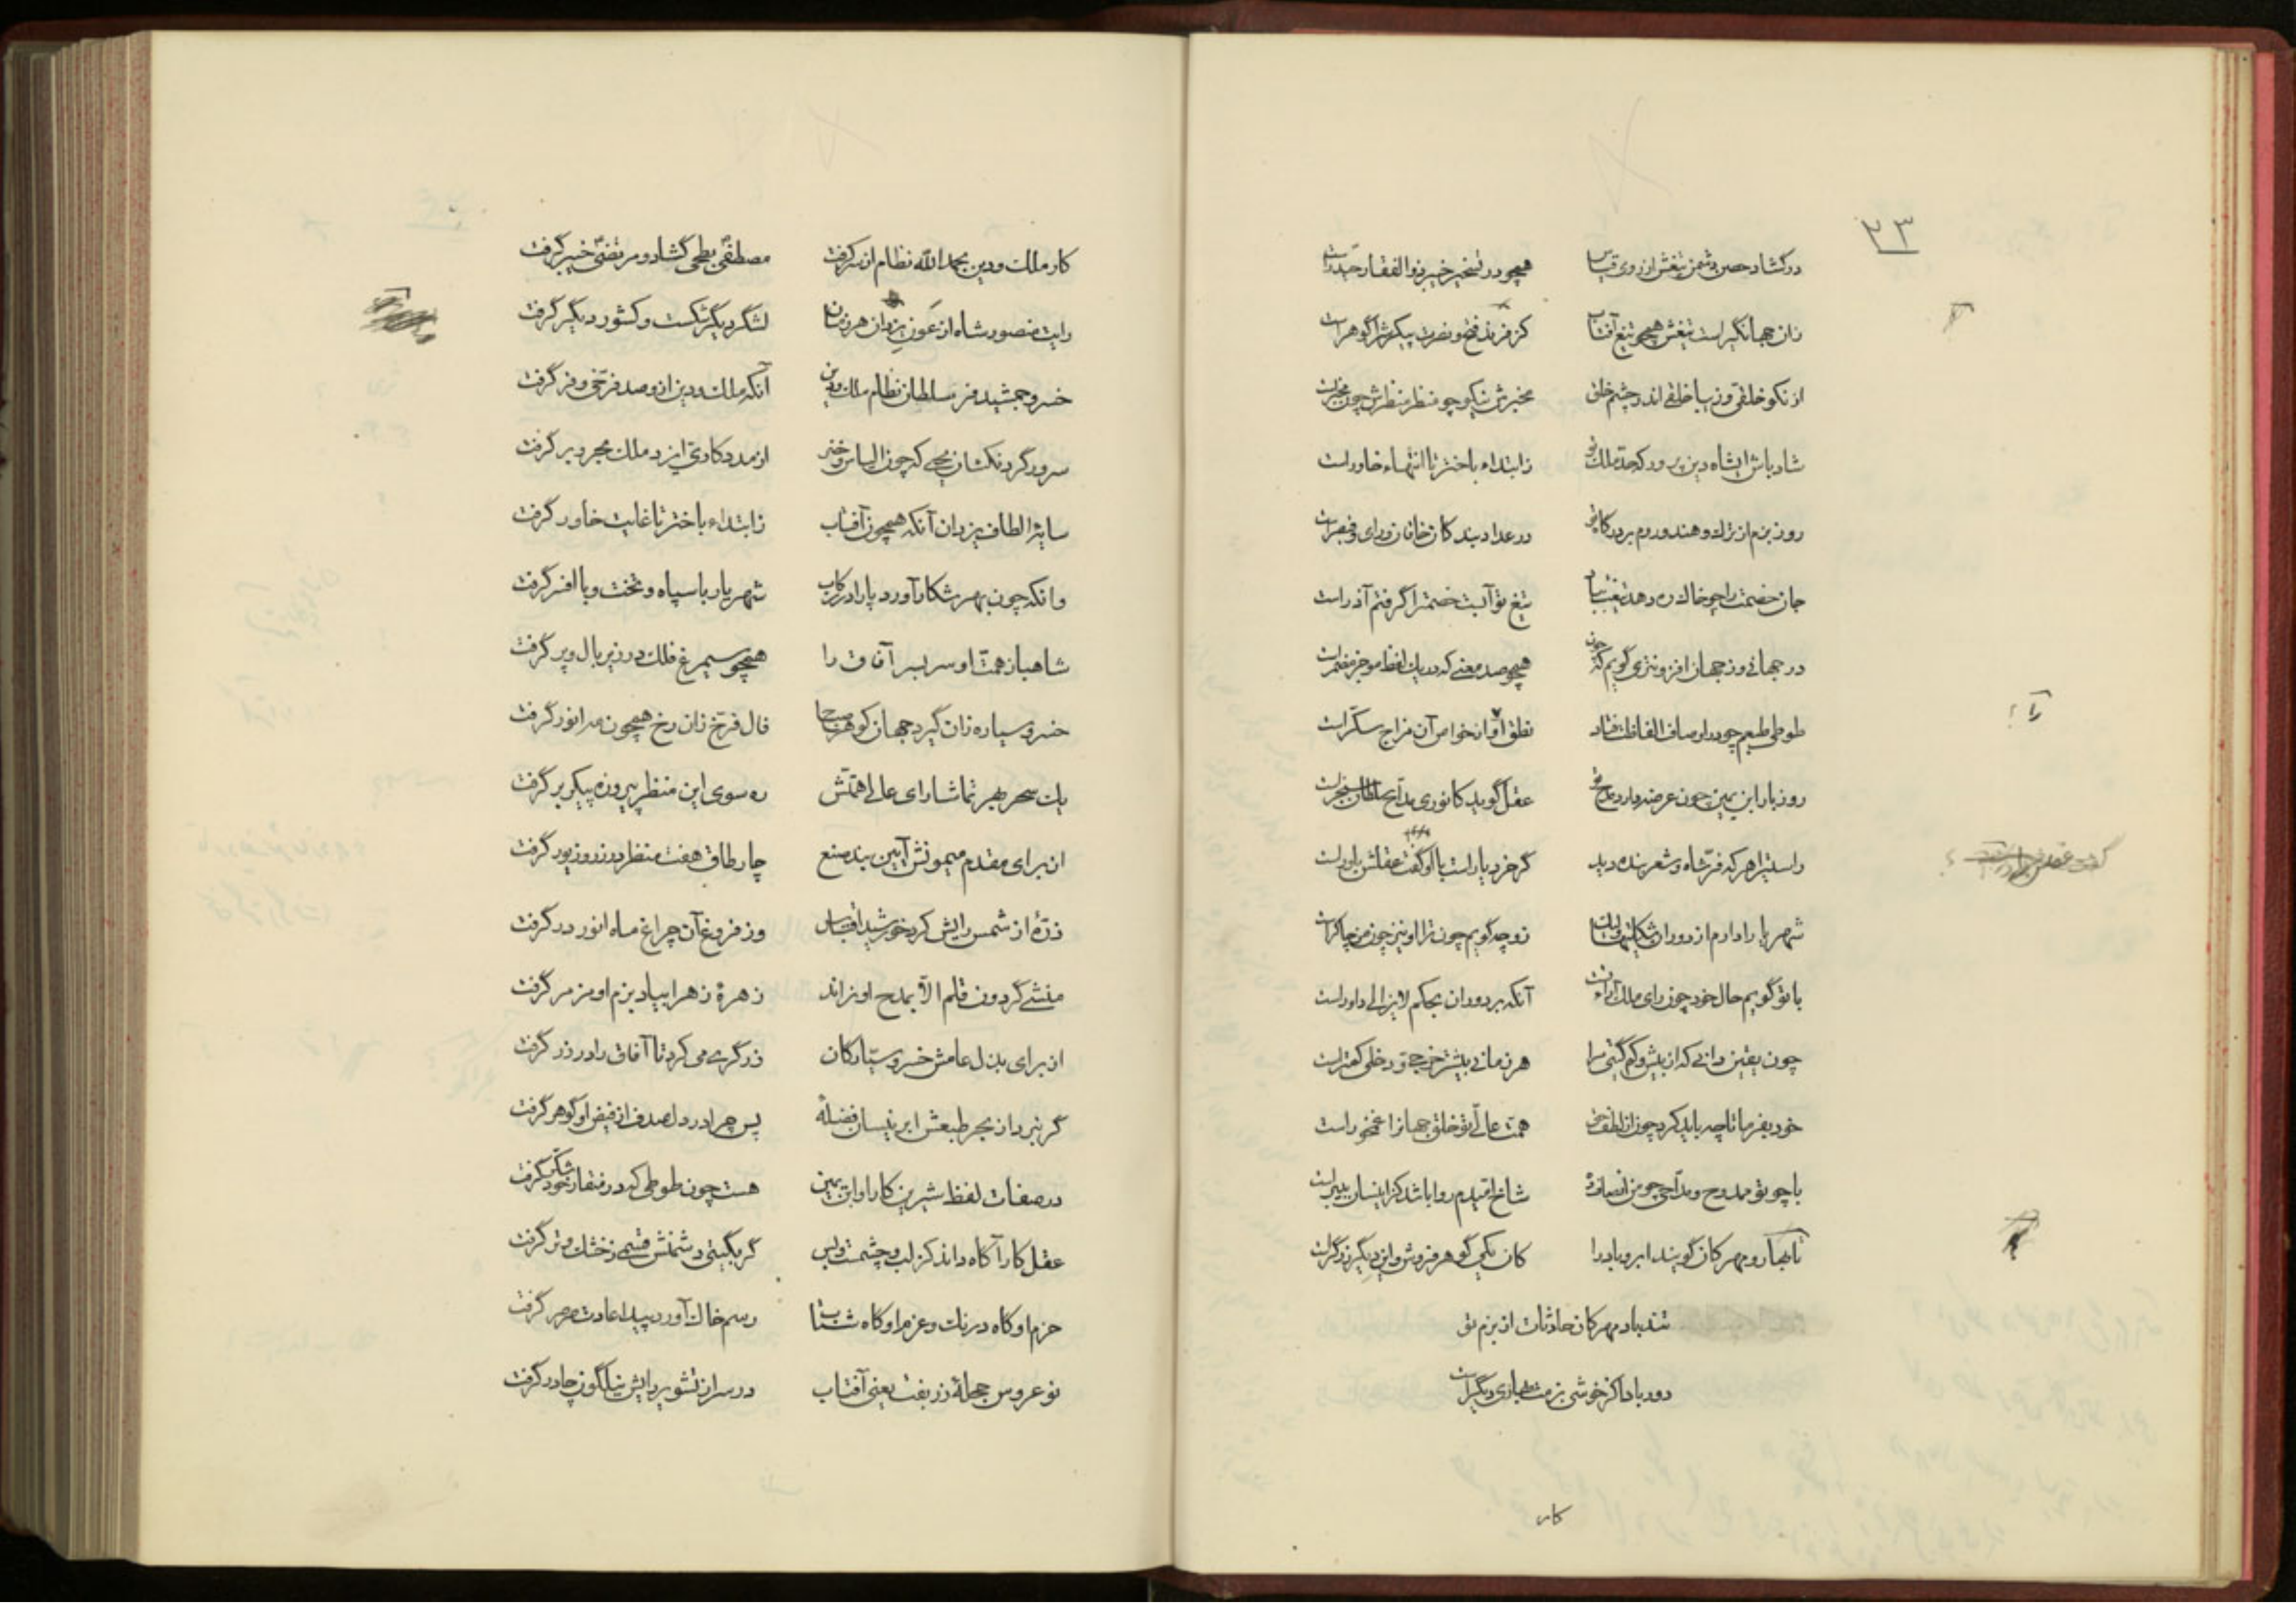 ۲۳
در گشاد حصن دشمن تیغش از روی قیاس همچو در تسخیر خیبر ذوالفقار حیدرست
زان جهانگیر است تیغش همچو تیغ آفتاب کز فرند فتح و نصرت پیکرش را گوهر است
از نکو خلقی و زیبا خلقی اندر چشم خلق مخبرش نیکو چو منظر منظرش چون مخبرست
شاد باش ای شاه دین پرور که حد ملک تو ز ابتداء باختر تا انتهاء خاور است
روز بزم از ترک و هند و روم بر درگاه تو در عداد بندکان خاقان و رای و قیصرست
جان خصمت را چو خاک ره دهد تیغت بباد تیغ تو آبست خصمت را گرفتم آذر است
در جهانی وز جهان افزونتری گویم که چون همچو صد معنی که در یک لفظ موجز مضمرست
طوطی طبعم چو در اوصاف الفاظت فتاد نطق او از خواص آن مزاج سکّر است
روز بار ابن یمین چون عرضه دارد مدح تو عقل گوید کانوری مداح سلطان سنجرست
راستی را هر که فرّ شاه و شعر بنده دید گر خرد یار است با او گفت عقلش یاورست
شهریارا دارم از دوران شکایتها ولیک زو چه گویم چون ترا او نیز چون من چاکرست
با تو گویم حال خود چون رای ملک آرای تست آنکه بر دوران بحکم لایزالی داور است
چون یقین دانی که از بیش و کم گیتی مرا هر زمانی بیشتر خرجی و دخلی کمترست
خود بفرما تا چه باید کرد چون از لطف حق همت عالی تو خلق جهانرا غمخور است
با چو تو ممدوح و مداحی چو من انصاف ده شاخ امیدم روا باشد کز اینسان بی برست
تا بهار و مهرکان گویند ابر و باد را کان یکی گوهر فروش و این دیگر زرگرست
تند باد مهرکان حادثات از بزم تو
دور بادا کز خوشی بزمت بهاری دیگرست
کار
کار ملک و دین بحمدالله نظام از سر گرفت مصطفی بطحی گشاد و مرتضی خیبر گرفت
رایت منصور شاه از عون یزدان هر زمان لشگر دیگر شکست و کشور دیگر گرفت
خسرو جمشید فر سلطان نظام ملک و دین آنکه ملک و دین ازو صد فرّخی و فر گرفت
سرور گردنکشان یحیی که چون الیاس و خضر از مددکاری ایزد ملک بحر و بر گرفت
سایه الطاف یزدان آنکه همچون آفتاب ز ابتداء باختر تا غایت خاور گرفت
وانکه چون بهر شکار آورد پا را در رکاب شهریار با سپاه و تخت و با افسر گرفت
شاهباز همت او سر بسر آفاق را همچو سیمرغ فلک در زیر بال و پر گرفت
خسرو سیاره زان گیرد جهان کو هر صباح فال فرّخ زان رخ همچون مه انور گرفت
یک سحر بهر تماشا رای عالی همتش ره سوی این منظر پیروزه پیکر بر گرفت
از برای مقدم میمونش آیین بند صنع چار طاق هفت منظر در زر و زیور گرفت
ذرّهٔ از شمس رایش کرد خورشید اقتباس وز فروغ آن چراغ ماه انور در گرفت
منشی گردون قلم الّا بمدح او نراند زهرهٔ زهرا بیاد بزم او مزمر گرفت
از برای بذل عامش خسرو سیّارکان زرگری می کرد تا آفاق را در زر گرفت
گر نبرد از بحر طبعش ابر نیسان فضلهٔ پس چرا در دل صدف از فیض او گوهر گرفت
در صفات لفظ شیرین کار او ابن یمین هست چون طوطی که در منقار خود شکّر گرفت
عقل کار آگاه داند کز لب و چشمست و بس گر بگیتی دشمنش قسمی ز خشک و تر گرفت
حزم او گاه درنگ و عزم او گاه شتاب رسم خاک آورد پیدا عادت صرصر گرفت
نو عروس حجلهٔ زربفت یعنی آفتاب در سر از تشویر رایش نیلگون چادر گرفت